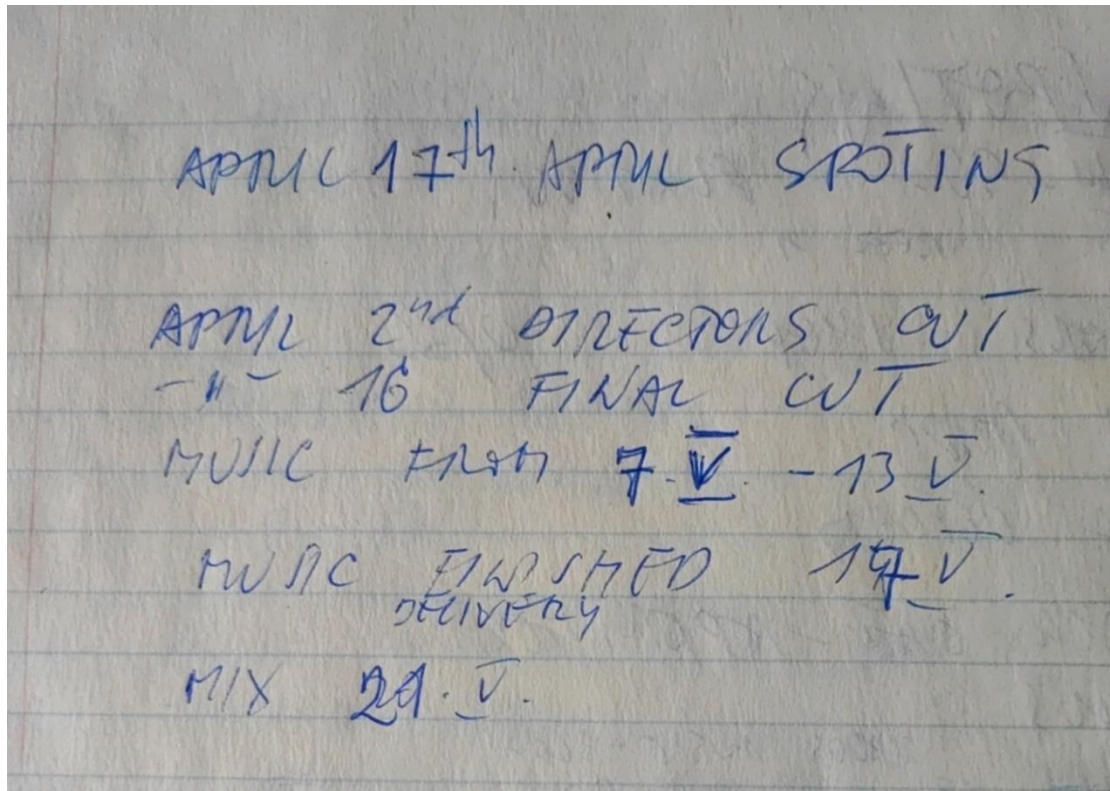 APRIL 17th APRIL SPOTING
APRIL 2nd DIRECTORS CUT
-"- 16 FINAL CUT
MUSIC FROM 7.V. - 13 V.
MUSIC FINISHED 17 V.
DELIVERY
MIX 21. V.